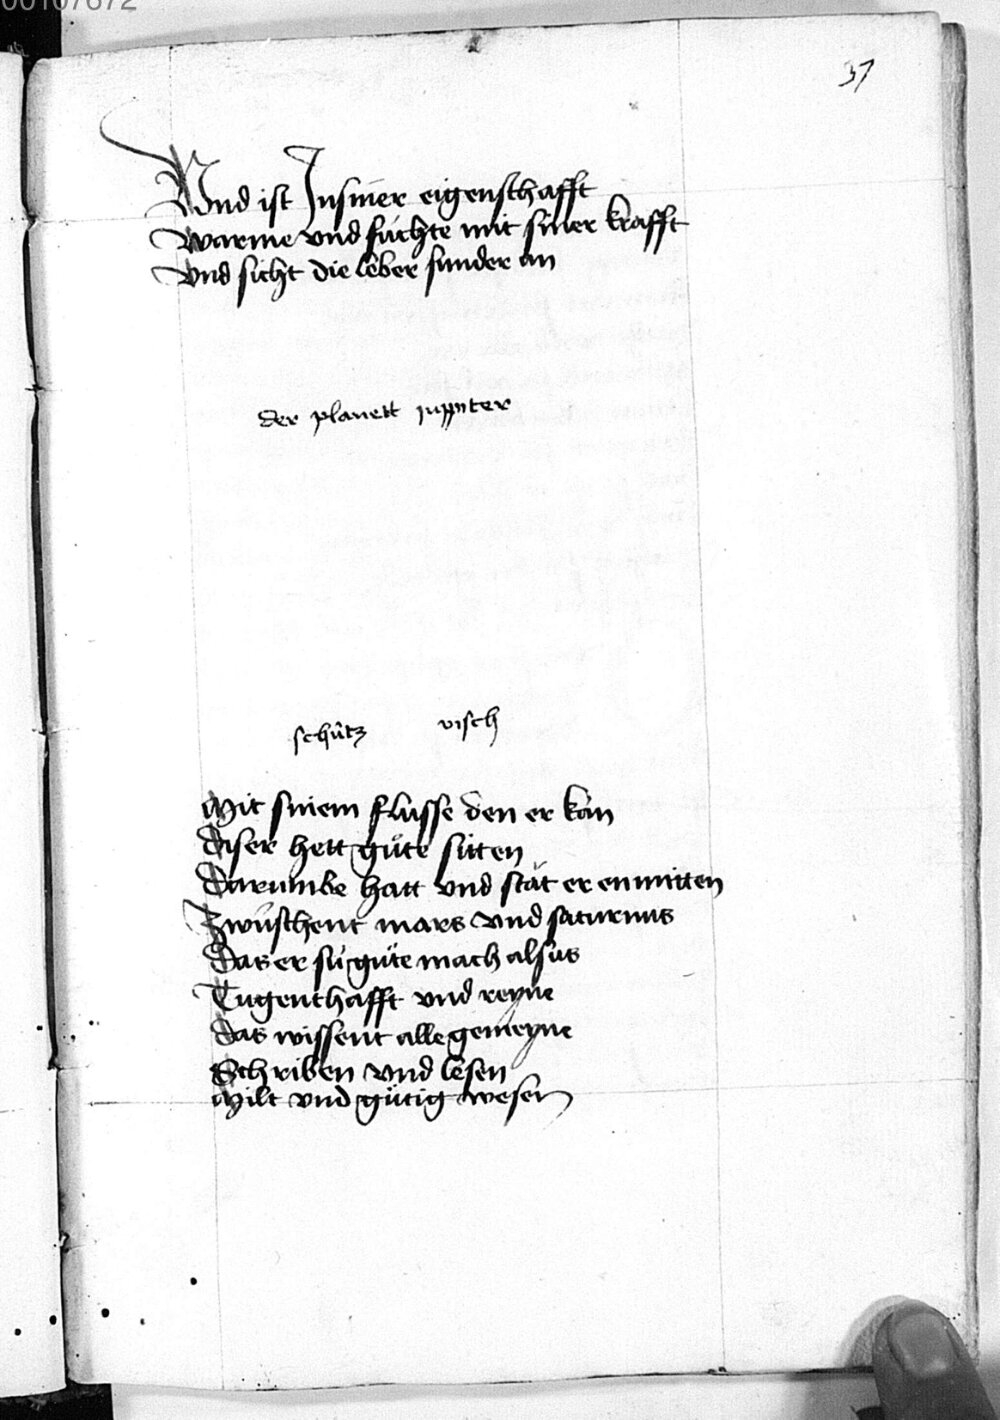 00107672
37
Vnd ist In siner eigenschafft
Warme vnd füchte mit siner krafft
Vnd sicht die leber sunder an
der planett juppiter
schütz visch
Mit sinem flusse den er kan
Diser hett güte sitten
Darumbe hatt vnd stät er enmitten
Zwüschent mars vnd saturnus
Das er sü güte mach alsus
Tugenthafft vnd reyne
Das wissent alle gemeyne
Schriben vnd lesen
Milt vnd gütig wesen